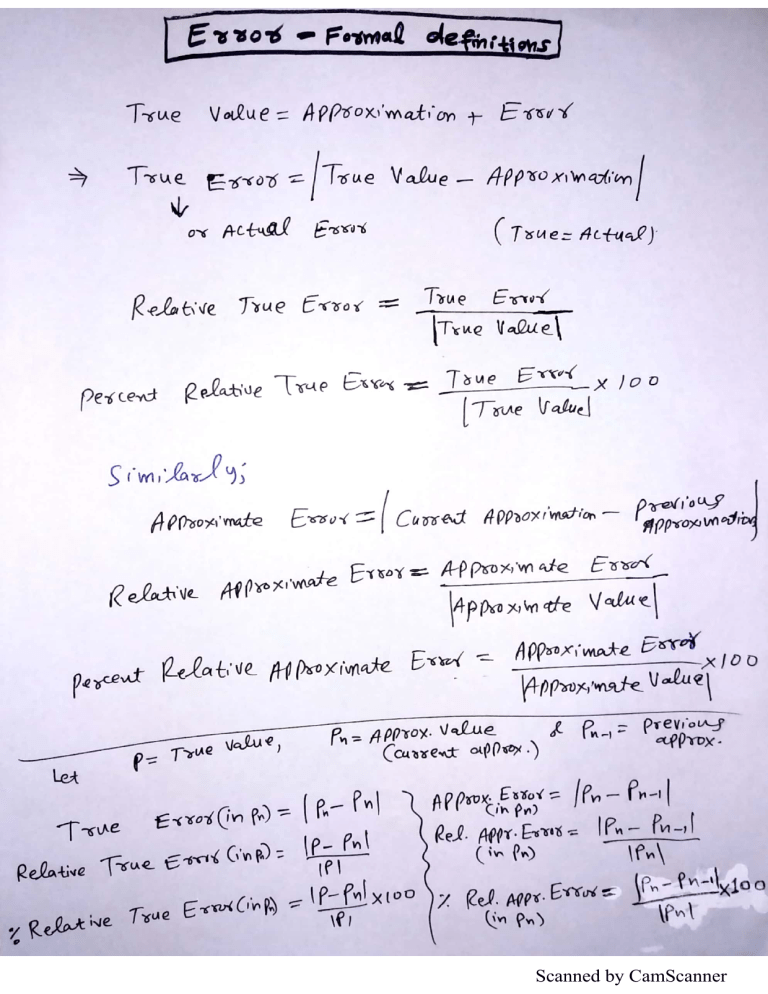 Error - Formal definitions
True Value = Approximation + Error
⇒ True Error = |True Value - Approximation|
↓
or Actual Error (True = Actual)
Relative True Error = True Error
|True Value|
Percent Relative True Error = True Error × 100
|True Value|
Similarly;
Approximate Error = |Current Approximation - Previous Approximation|
Relative Approximate Error = Approximate Error
|Approximate Value|
Percent Relative Approximate Error = Approximate Error ×100
|Approximate Value|
Let P = True value, Pn = Approx. Value (current approx.) & Pn-1 = Previous approx.
True Error (in Pn) = |Pn - Pn|
Relative True Error (in Pn) = |P - Pn|
|P|
% Relative True Error (in Pn) = |P-Pn| ×100
|P|
Approx. Error = |Pn - Pn-1|
(in Pn)
Rel. Appr. Error = |Pn - Pn-1|
(in Pn) |Pn|
% Rel. Appr. Error = |Pn - Pn-1| ×100
(in Pn) |Pn|
Scanned by CamScanner